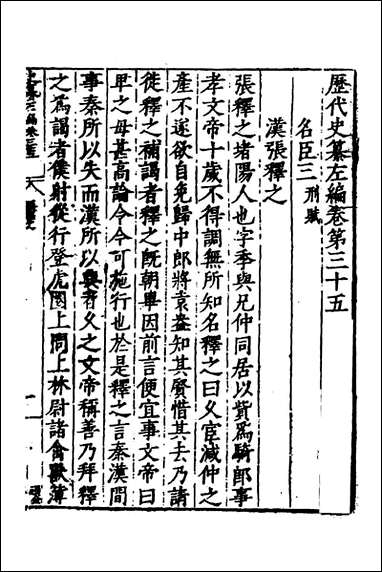 歷代史纂左編卷第三十五
名臣三 刑賦
漢張釋之
張釋之堵陽人也字季與兄仲同居以貲爲騎郎事
孝文帝十歲不得調無所知名釋之曰久宦減仲之
產不遂欲自免歸中郎將袁盎知其賢惜其去乃請
徙釋之補謁者釋之旣朝畢因前言便宜事文帝曰
卑之毋甚高論令今可施行也於是釋之言秦漢間
事秦所以失而漢所以興者久之文帝稱善乃拜釋
之爲謁者僕射從行登虎圈上問上林尉諸禽獸簿